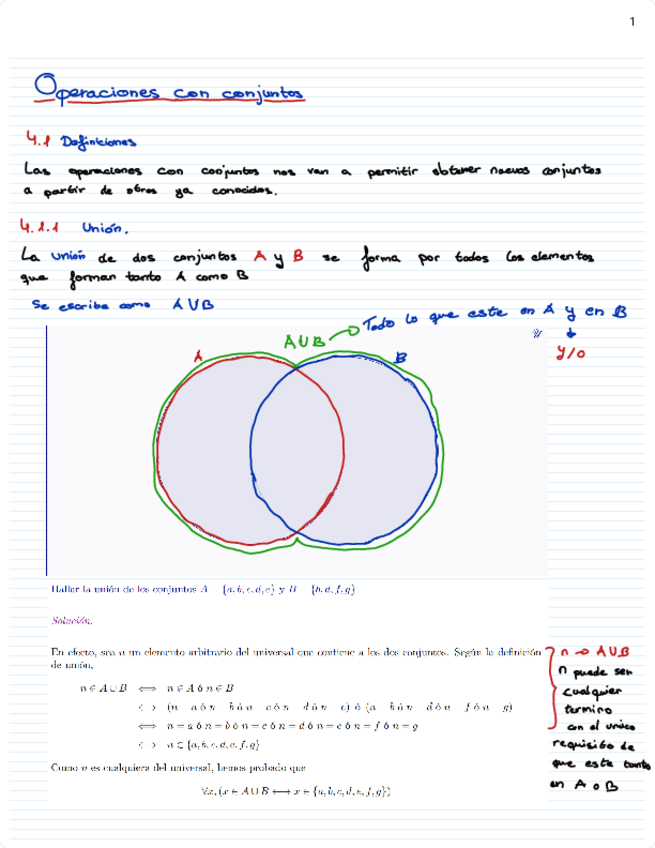 1
Operaciones con conjuntos
4.1 Definiciones
Las operaciones con conjuntos nos van a permitir obtener nuevos conjuntos
a partir de otros ya conocidos.
4.1.1 Unión.
La unión de dos conjuntos A y B se forma por todos los elementos
que forman tanto A como B
Se escribe como A∪B
Todo lo que este en A y en B
y/o
A∪B
𝒰
A
B
Hallar la unión de los conjuntos A = {a, b, c, d, e} y B = {b, d, f, g}
Solución.
En efecto, sea n un elemento arbitrario del universal que contiene a los dos conjuntos. Según la definición
de unión,
n ∈ A ∪ B ⟺ n ∈ A ó n ∈ B
⟺ (n = a ó n = b ó n = c ó n = d ó n = e) ó (n = b ó n = d ó n = f ó n = g)
⟺ n = a ó n = b ó n = c ó n = d ó n = e ó n = f ó n = g
⟺ n ∈ {a, b, c, d, e, f, g}
Como n es cualquiera del universal, hemos probado que
∀x, (x ∈ A ∪ B ⟷ x ∈ {a, b, c, d, e, f, g})
n → A∪B
n puede ser
cualquier
termino
con el unico
requisito de
que este tanto
en A o B